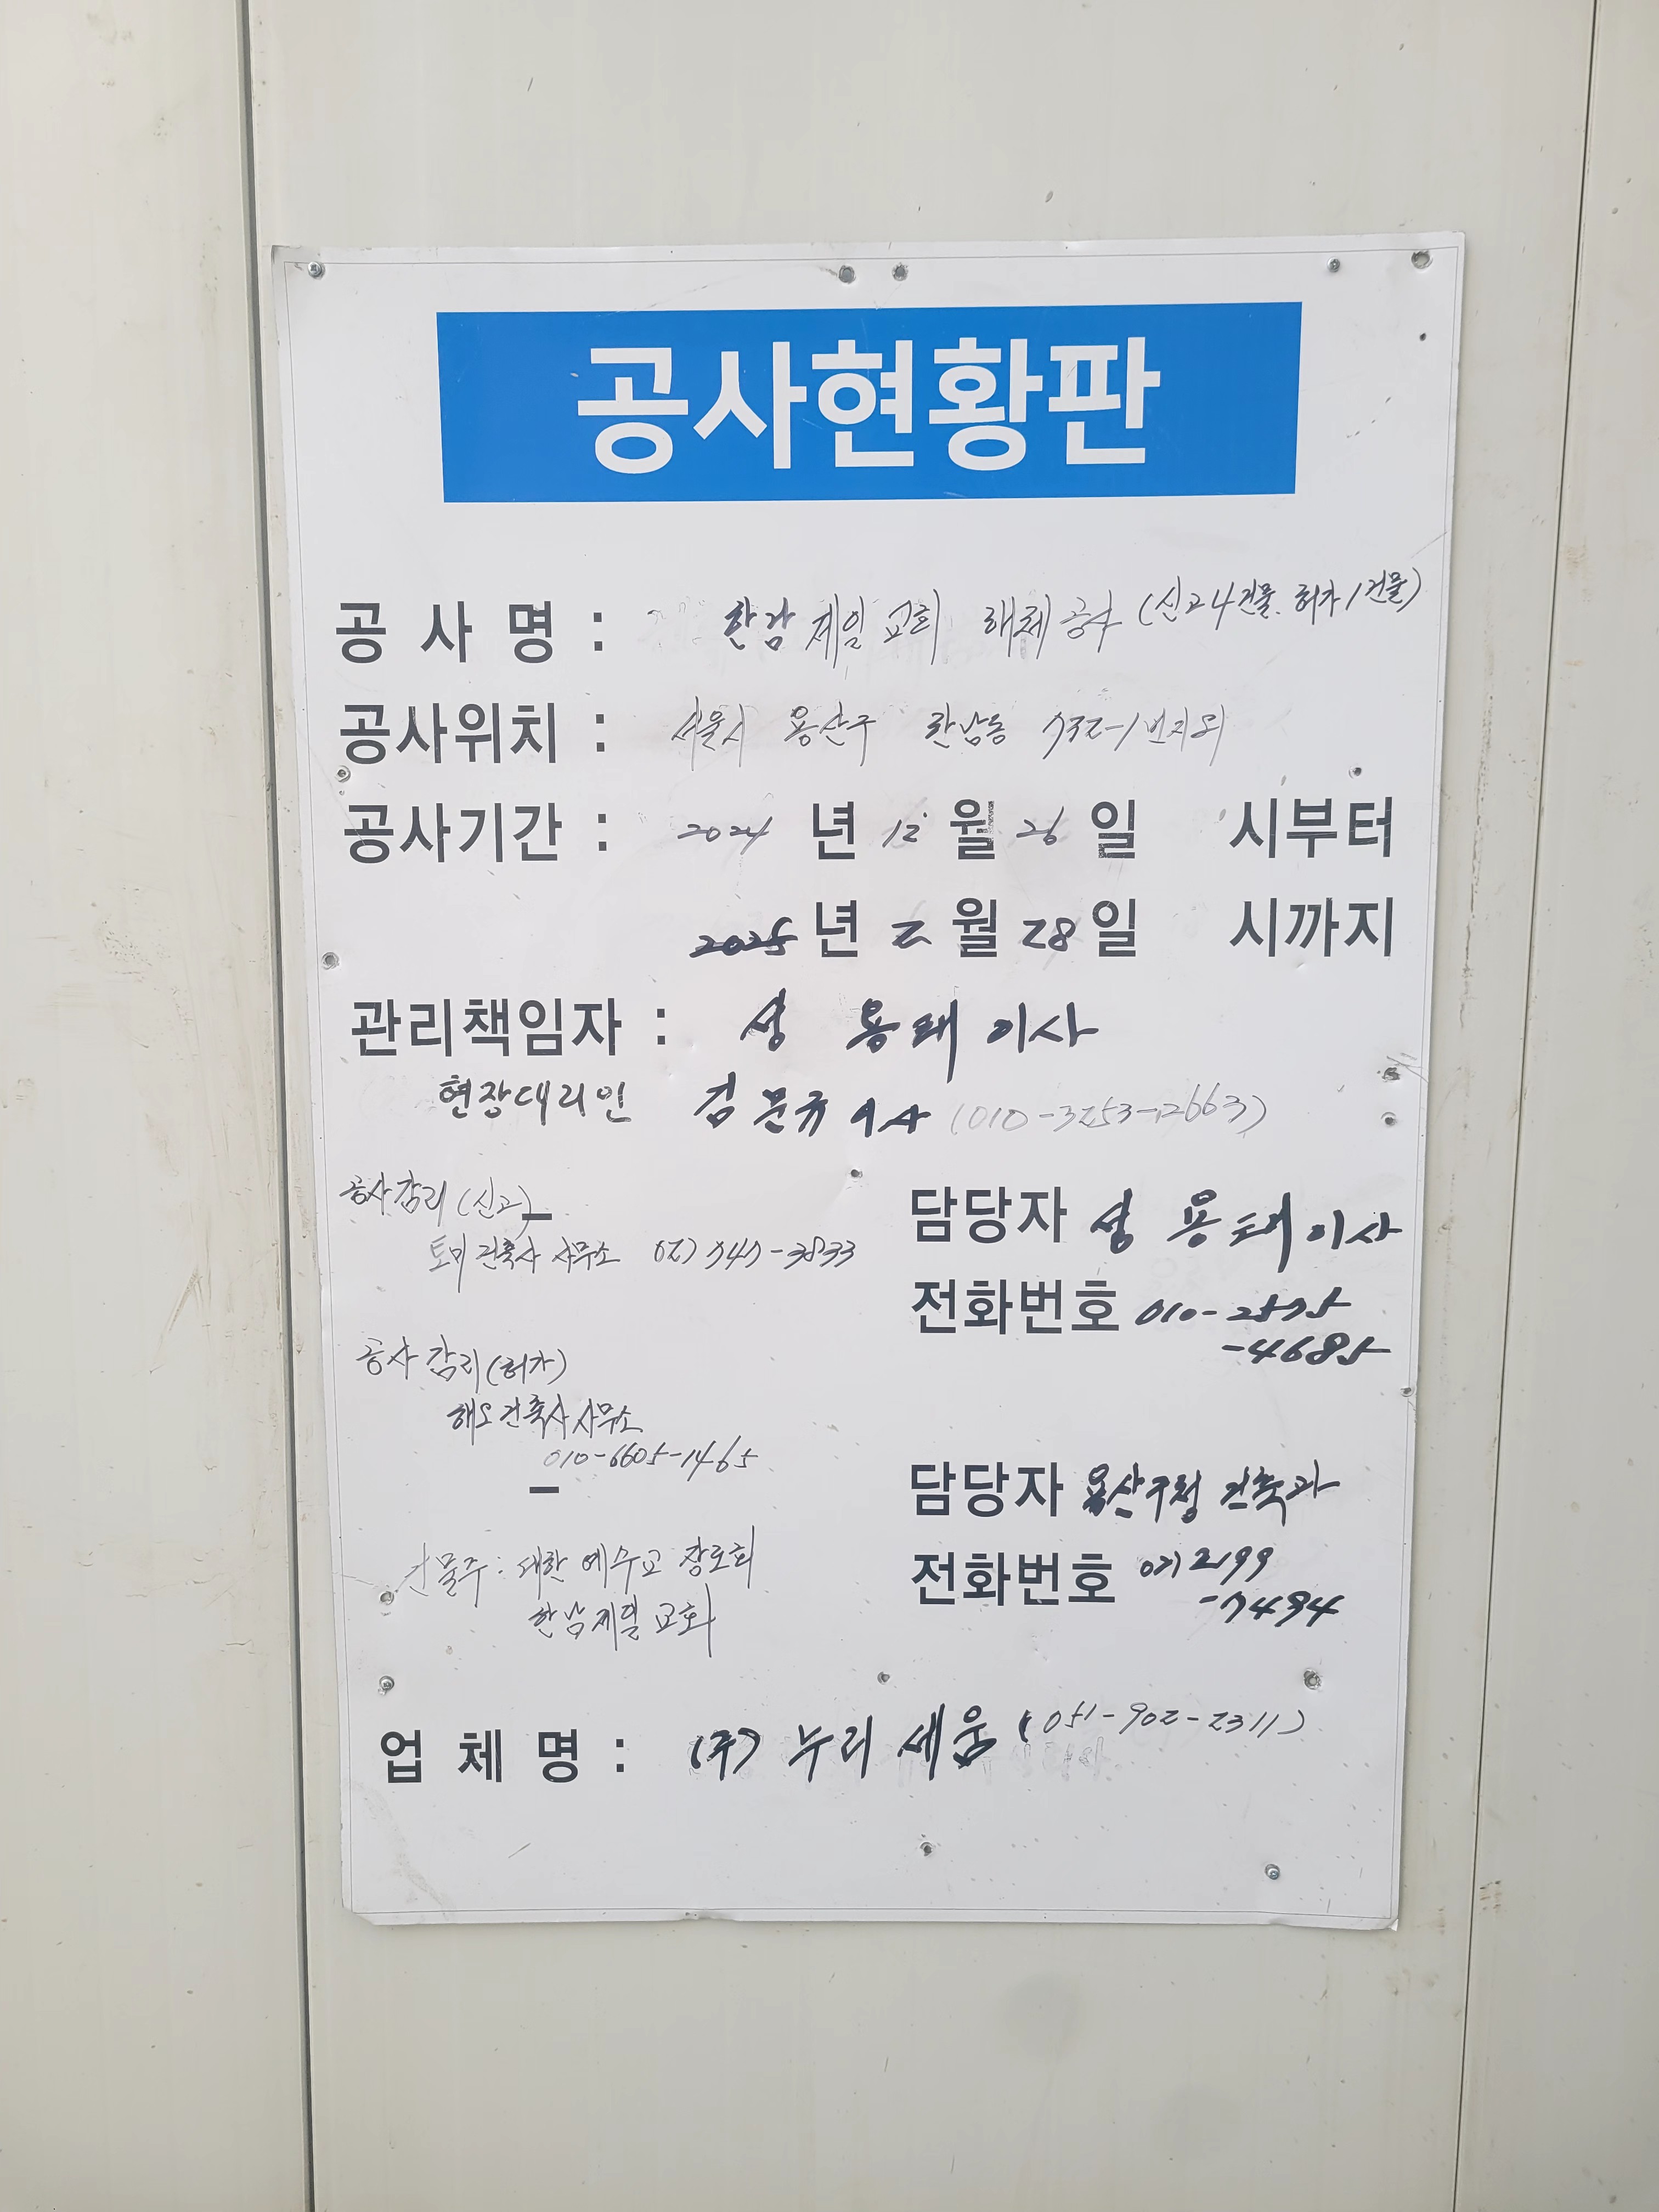 공사현황판
공 사 명 : 한남 제일 교회 해체 공사 (신고 4건물. 허가 1건물)
공사위치 : 서울시 용산구 한남동 732-1 번지외
공사기간 : 2024 년 12 월 26 일 시부터
2025 년 2 월 28 일 시까지
관리책임자 : 성 용태 이사
현장대리인 김문규 이사 (010-3253-2663)
공사감리 (신고)
토미 건축사 사무소 02) 747-3833
공사 감리 (허가)
해오 건축사 사무소
010-6605-1465
건물주 : 대한 예수교 장로회
한남제일 교회
담당자 성 용태 이사
전화번호 010-2575
-4685
담당자 용산구청 건축과
전화번호 02) 2199
-7494
업 체 명 : (주) 누리 세움 (051-902-2311)